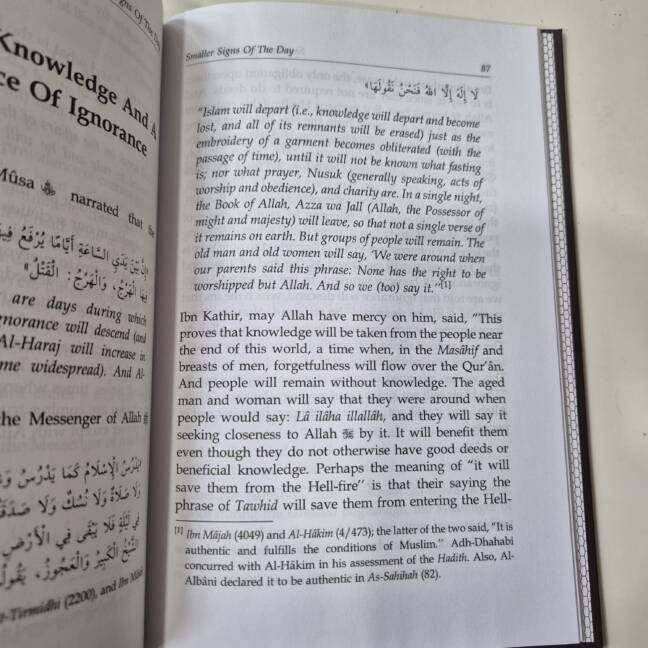 Knowledge And A
ce Of Ignorance
Mûsa narrated that the
إِنَّ بَيْنَ يَدَيِ السَّاعَةِ أَيَّامًا يُرْفَعُ فِيهَا
بِهَا الْهَرْجُ، وَالْهَرْجُ: الْقَتْلُ»
are days during which
norance will descend (and
Al-Haraj will increase in
me widespread). And Al-
the Messenger of Allah ﷺ
يَدْرُسُ الْإِسْلَامُ كَمَا يَدْرُسُ وَشْ
وَلَا صَلَاةٌ وَلَا نُسُكٌ وَلَا صَدَقَ
فِي لَيْلَةٍ فَلَا يَبْقَى فِي الْأَرْضِ
الشَّيْخُ الْكَبِيرُ وَالْعَجُوزُ، يَقُولُ
t-Tirmidhi (2200), and Ibn Mâjah
Signs Of The Day
Smaller Signs Of The Day
87
لَا إِلَهَ إِلَّا اللهُ فَنَحْنُ نَقُولُهَا»
"Islam will depart (i.e., knowledge will depart and become
lost, and all of its remnants will be erased) just as the
embroidery of a garment becomes obliterated (with the
passage of time), until it will not be known what fasting
is; nor what prayer, Nusuk (generally speaking, acts of
worship and obedience), and charity are. In a single night,
the Book of Allah, Azza wa Jall (Allah, the Possessor of
might and majesty) will leave, so that not a single verse of
it remains on earth. But groups of people will remain. The
old man and old women will say, 'We were around when
our parents said this phrase: None has the right to be
worshipped but Allah. And so we (too) say it.'"[1]
Ibn Kathir, may Allah have mercy on him, said, "This
proves that knowledge will be taken from the people near
the end of this world, a time when, in the Masâhif and
breasts of men, forgetfulness will flow over the Qur'ân.
And people will remain without knowledge. The aged
man and woman will say that they were around when
people would say: Lâ ilâha illallâh, and they will say it
seeking closeness to Allah ﷻ by it. It will benefit them
even though they do not otherwise have good deeds or
beneficial knowledge. Perhaps the meaning of "it will
save them from the Hell-fire" is that their saying the
phrase of Tawhid will save them from entering the Hell-
[1] Ibn Mâjah (4049) and Al-Hâkim (4/473); the latter of the two said, "It is
authentic and fulfills the conditions of Muslim." Adh-Dhahabi
concurred with Al-Hâkim in his assessment of the Hadith. Also, Al-
Albâni declared it to be authentic in As-Sahihah (82).